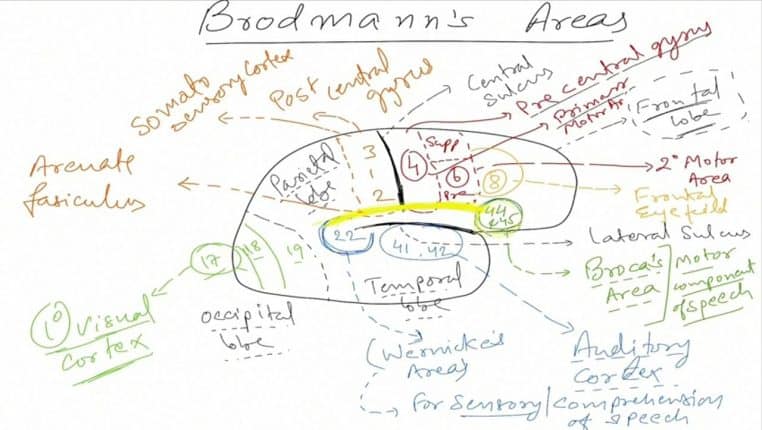 Brodmann's Areas
Somato
sensory cortex
Post central
gyrus
Central
Sulcus
Pre central gyrus
Primary
Motor Ar
Frontal
lobe
Arcuate
fasiculus
Parietal
lobe
3
1
2
4
Supp
6
Pre
8
2° Motor
Area
Frontal
Eye field
44
&45
22
41, 42
Lateral Sulcus
17
18
19
Temporal
lobe
Broca's
Area
Motor
component
of speech
1° Visual
cortex
occipital
lobe
(Wernicke's
Areas
Auditory
Cortex
For Sensory/Comprehension
of speech